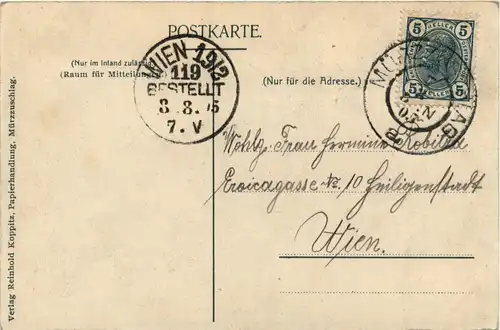 POSTKARTE.
(Nur im Inland zulässig)
(Raum für Mitteilungen
(Nur für die Adresse.)
WIEN 19/2
119
BESTELLT
8. 5
7. V
5 5
HELLER HELLER
5 5
MÜRZ AG
Wohlg. Frau Hermine
Eroicagasse No. 10 Heiligenstadt
Wien.
Verlag Reinhold Koppitz, Papierhandlung, Mürzzuschlag.